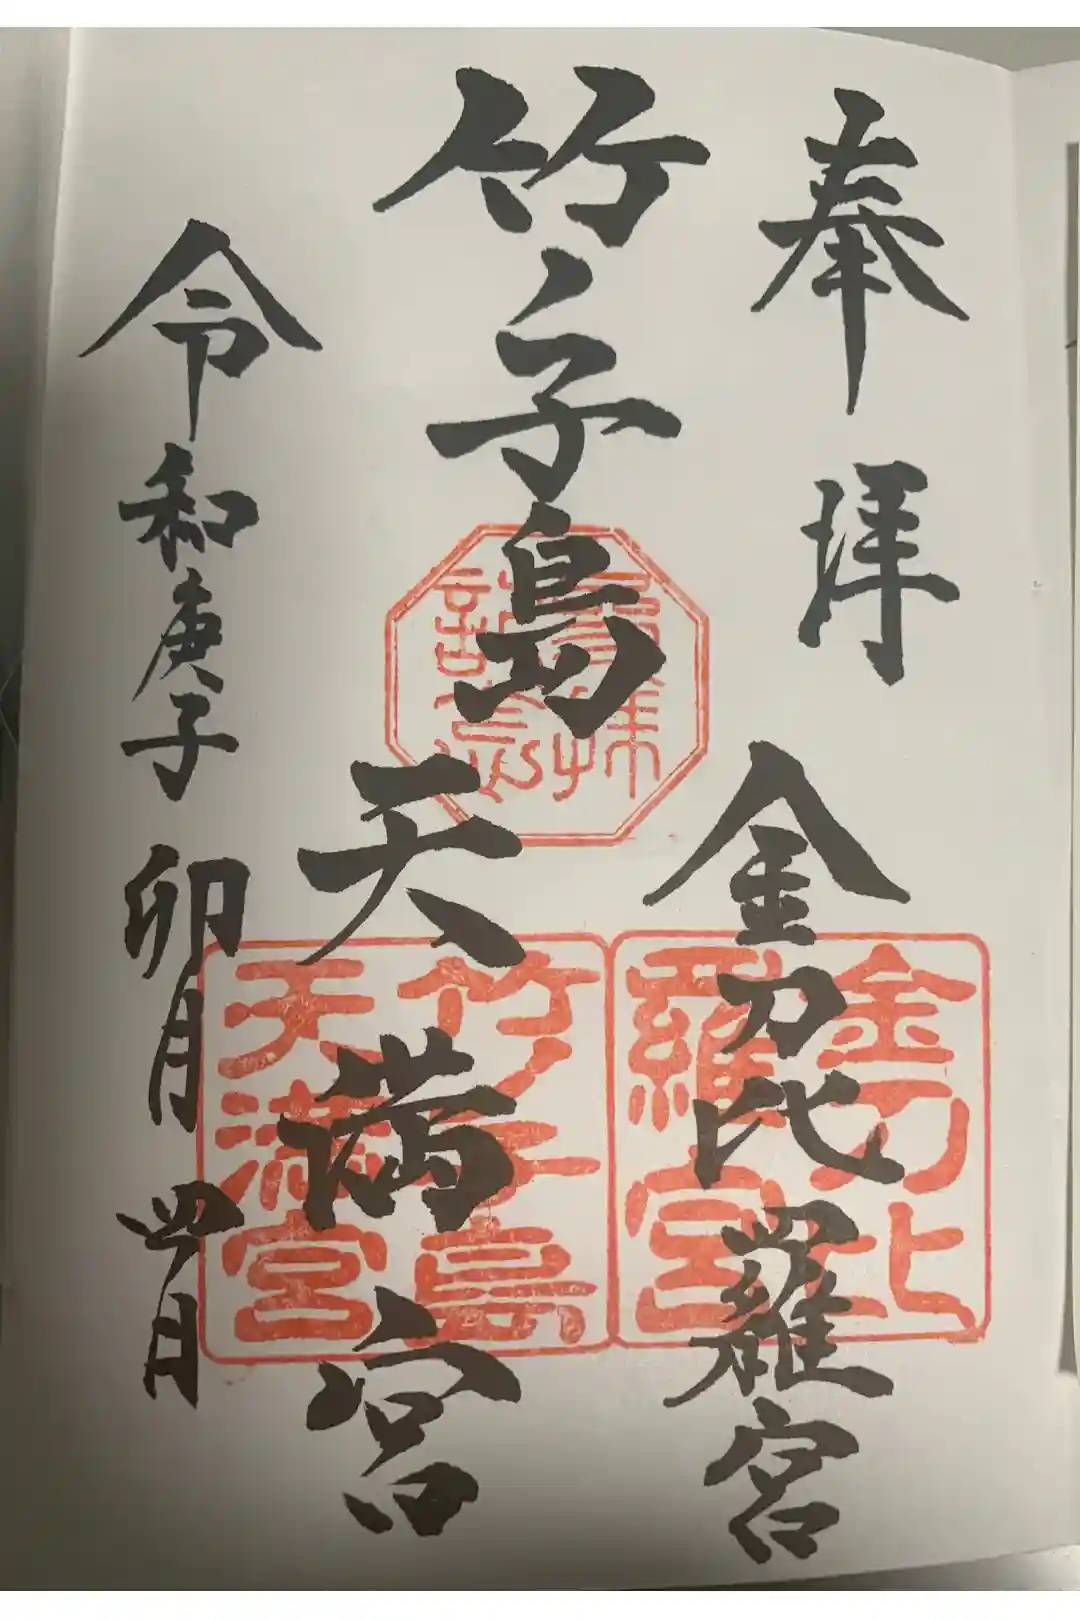 奉拝
金刀比羅宮
竹ノ子島
天満宮
令和庚子 卯月 四日
金刀比
羅宮
竹ノ子島
天満宮